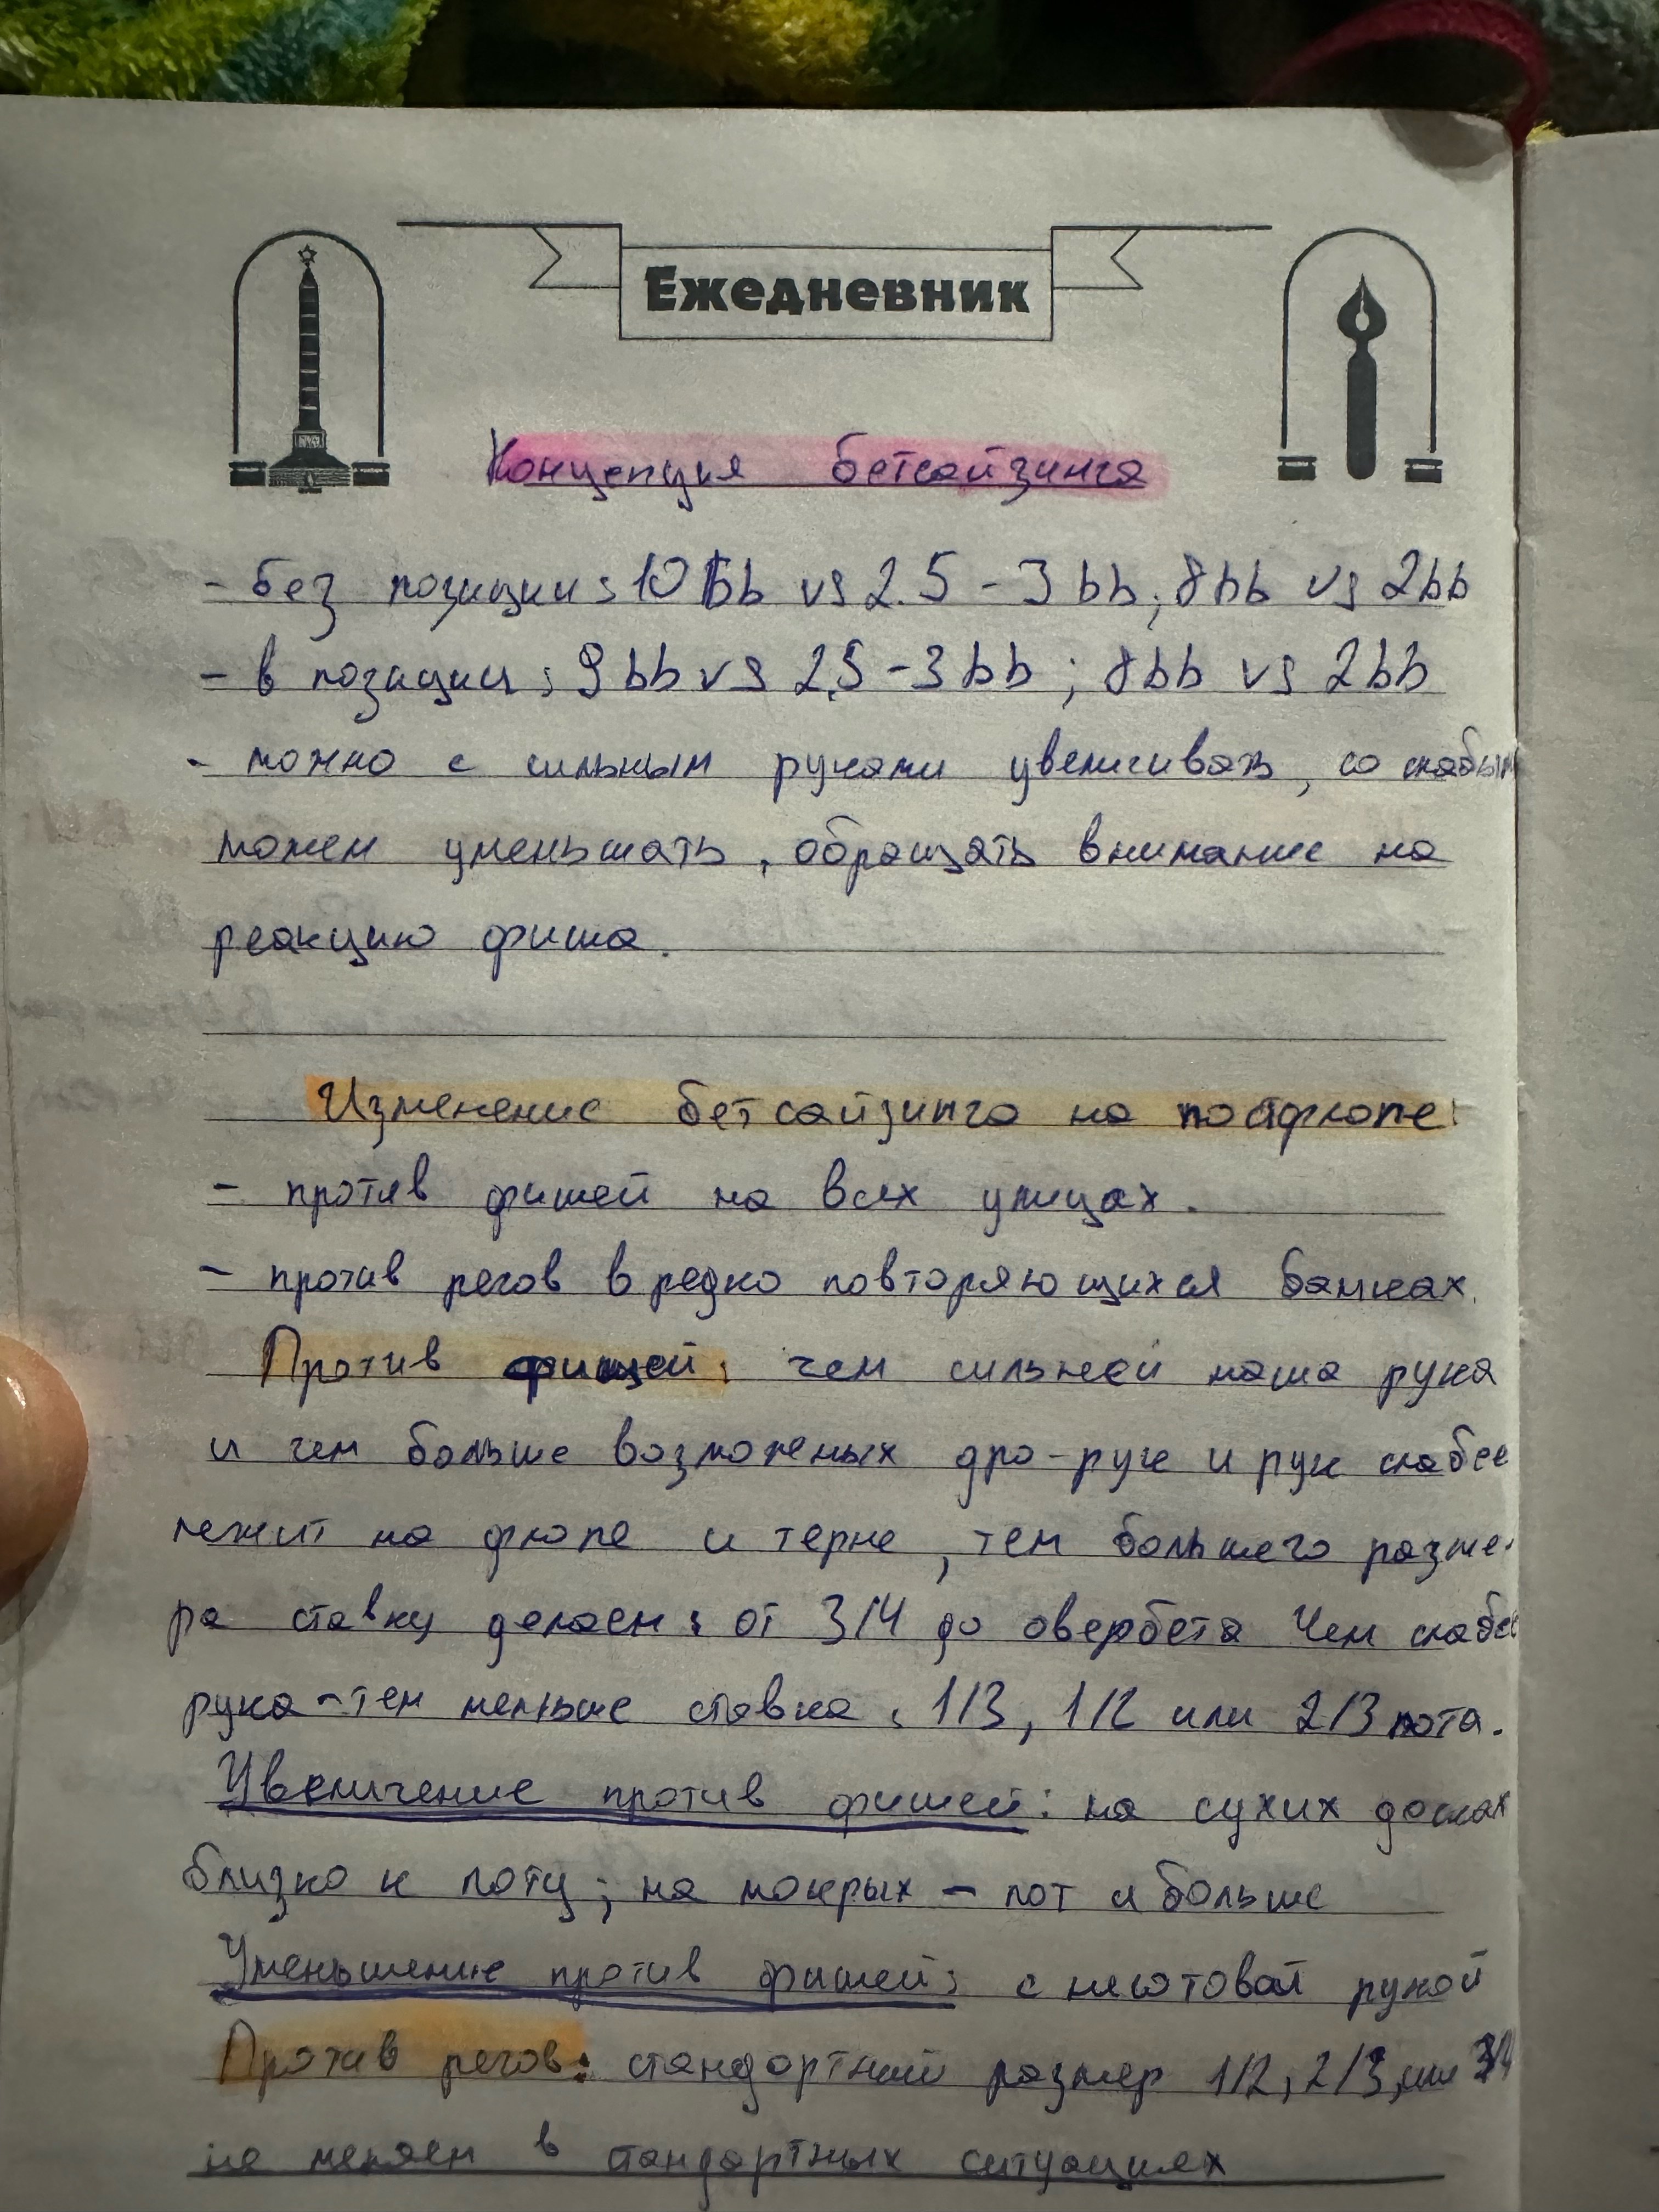 Ежедневник
Концепция бетсайзинга
- без позиции: 10 bb vs 2.5 - 3 bb; 8bb vs 2bb
- в позиции: 9 bb vs 2,5 - 3 bb ; 8bb vs 2bb
- можно с сильным руками увеличивать, со слабым
можем уменьшать, обращать внимание на
реакцию фиша.
Изменение бетсайзинга на постфлопе:
- против фишей на всех улицах.
- против регов в редко повторяющихся банках.
Против фишей: чем сильней наша рука
и чем больше возможных дро-рук и рук слабее
лежит на флопе и терне, тем большего разме-
ра ставку делаем: от 3/4 до овербета Чем слабее
рука - тем меньше ставка: 1/3, 1/2 или 2/3 пота.
Увеличение против фишей: на сухих досках
близко к поту; на мокрых - пот и больше
Уменьшение против фишей: с неготовой рукой
Против регов: стандартный размер 1/2, 2/3, или 3/4
не меняем в стандартных ситуациях